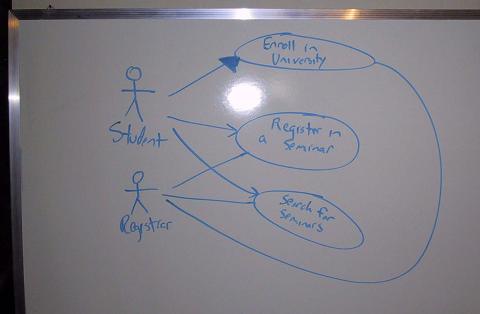 Enroll in
University
Student
Register in
a Seminar
Registrar
Search for
Seminars